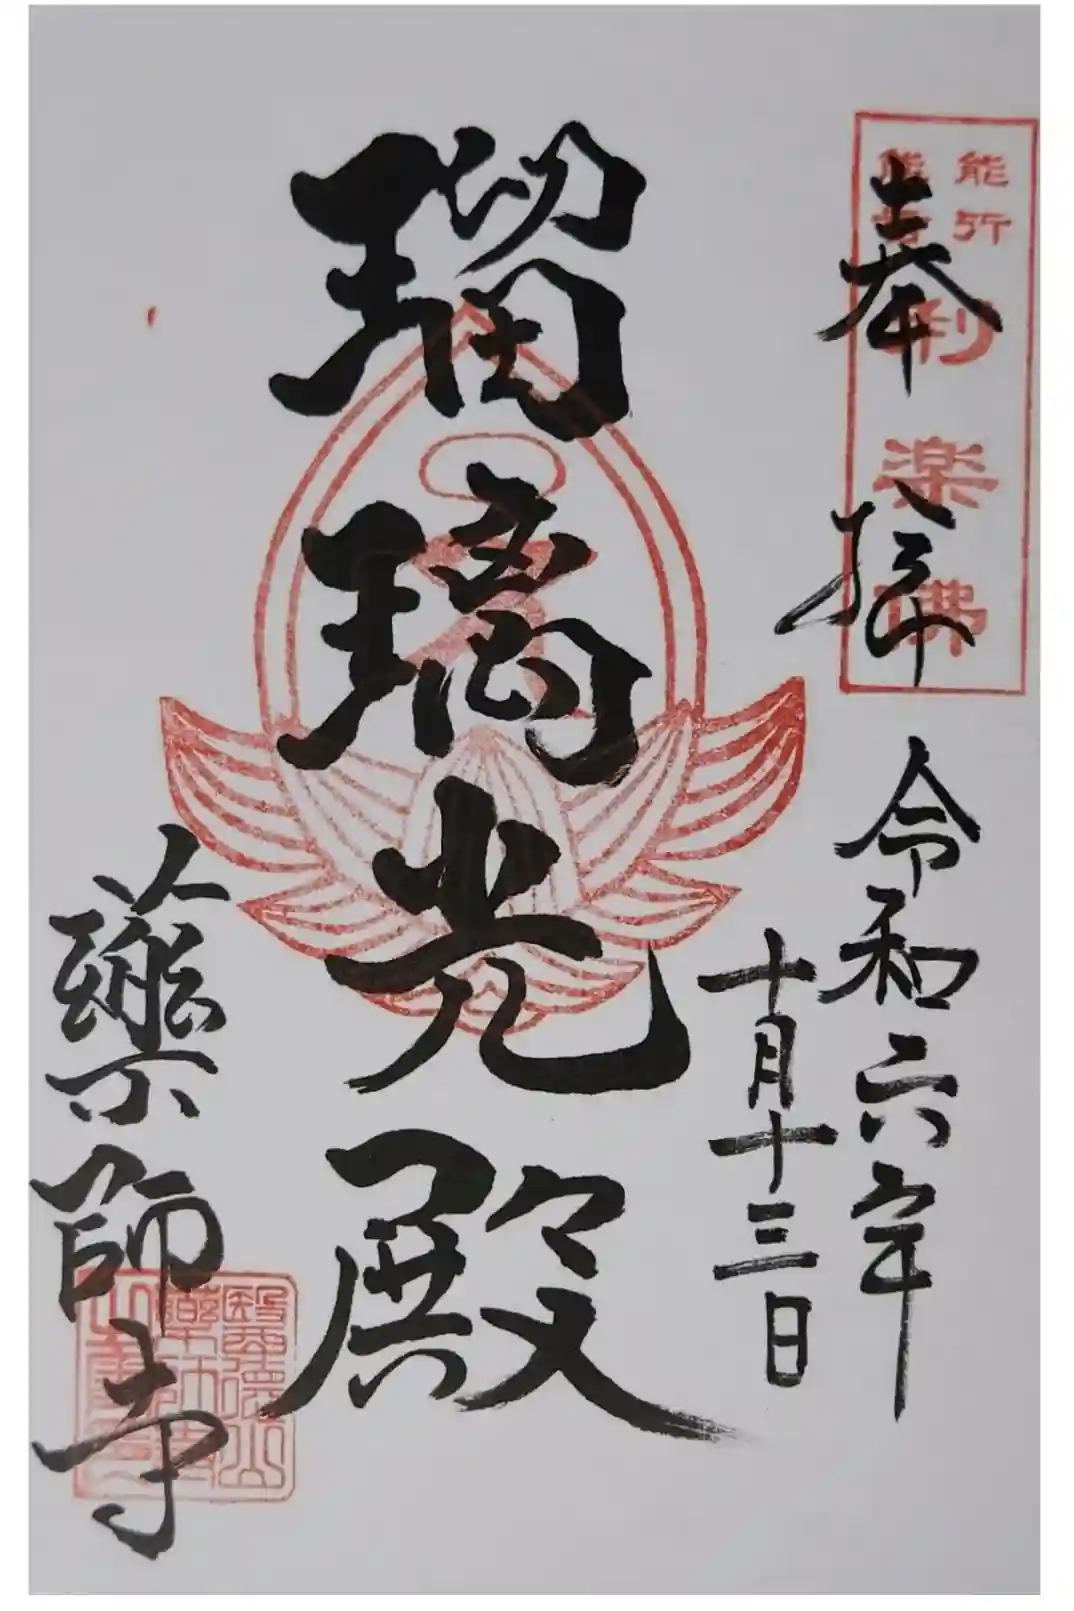 奉拝
令和六年
十月十三日
瑠璃光殿
藥師寺
能行
利
楽
佛